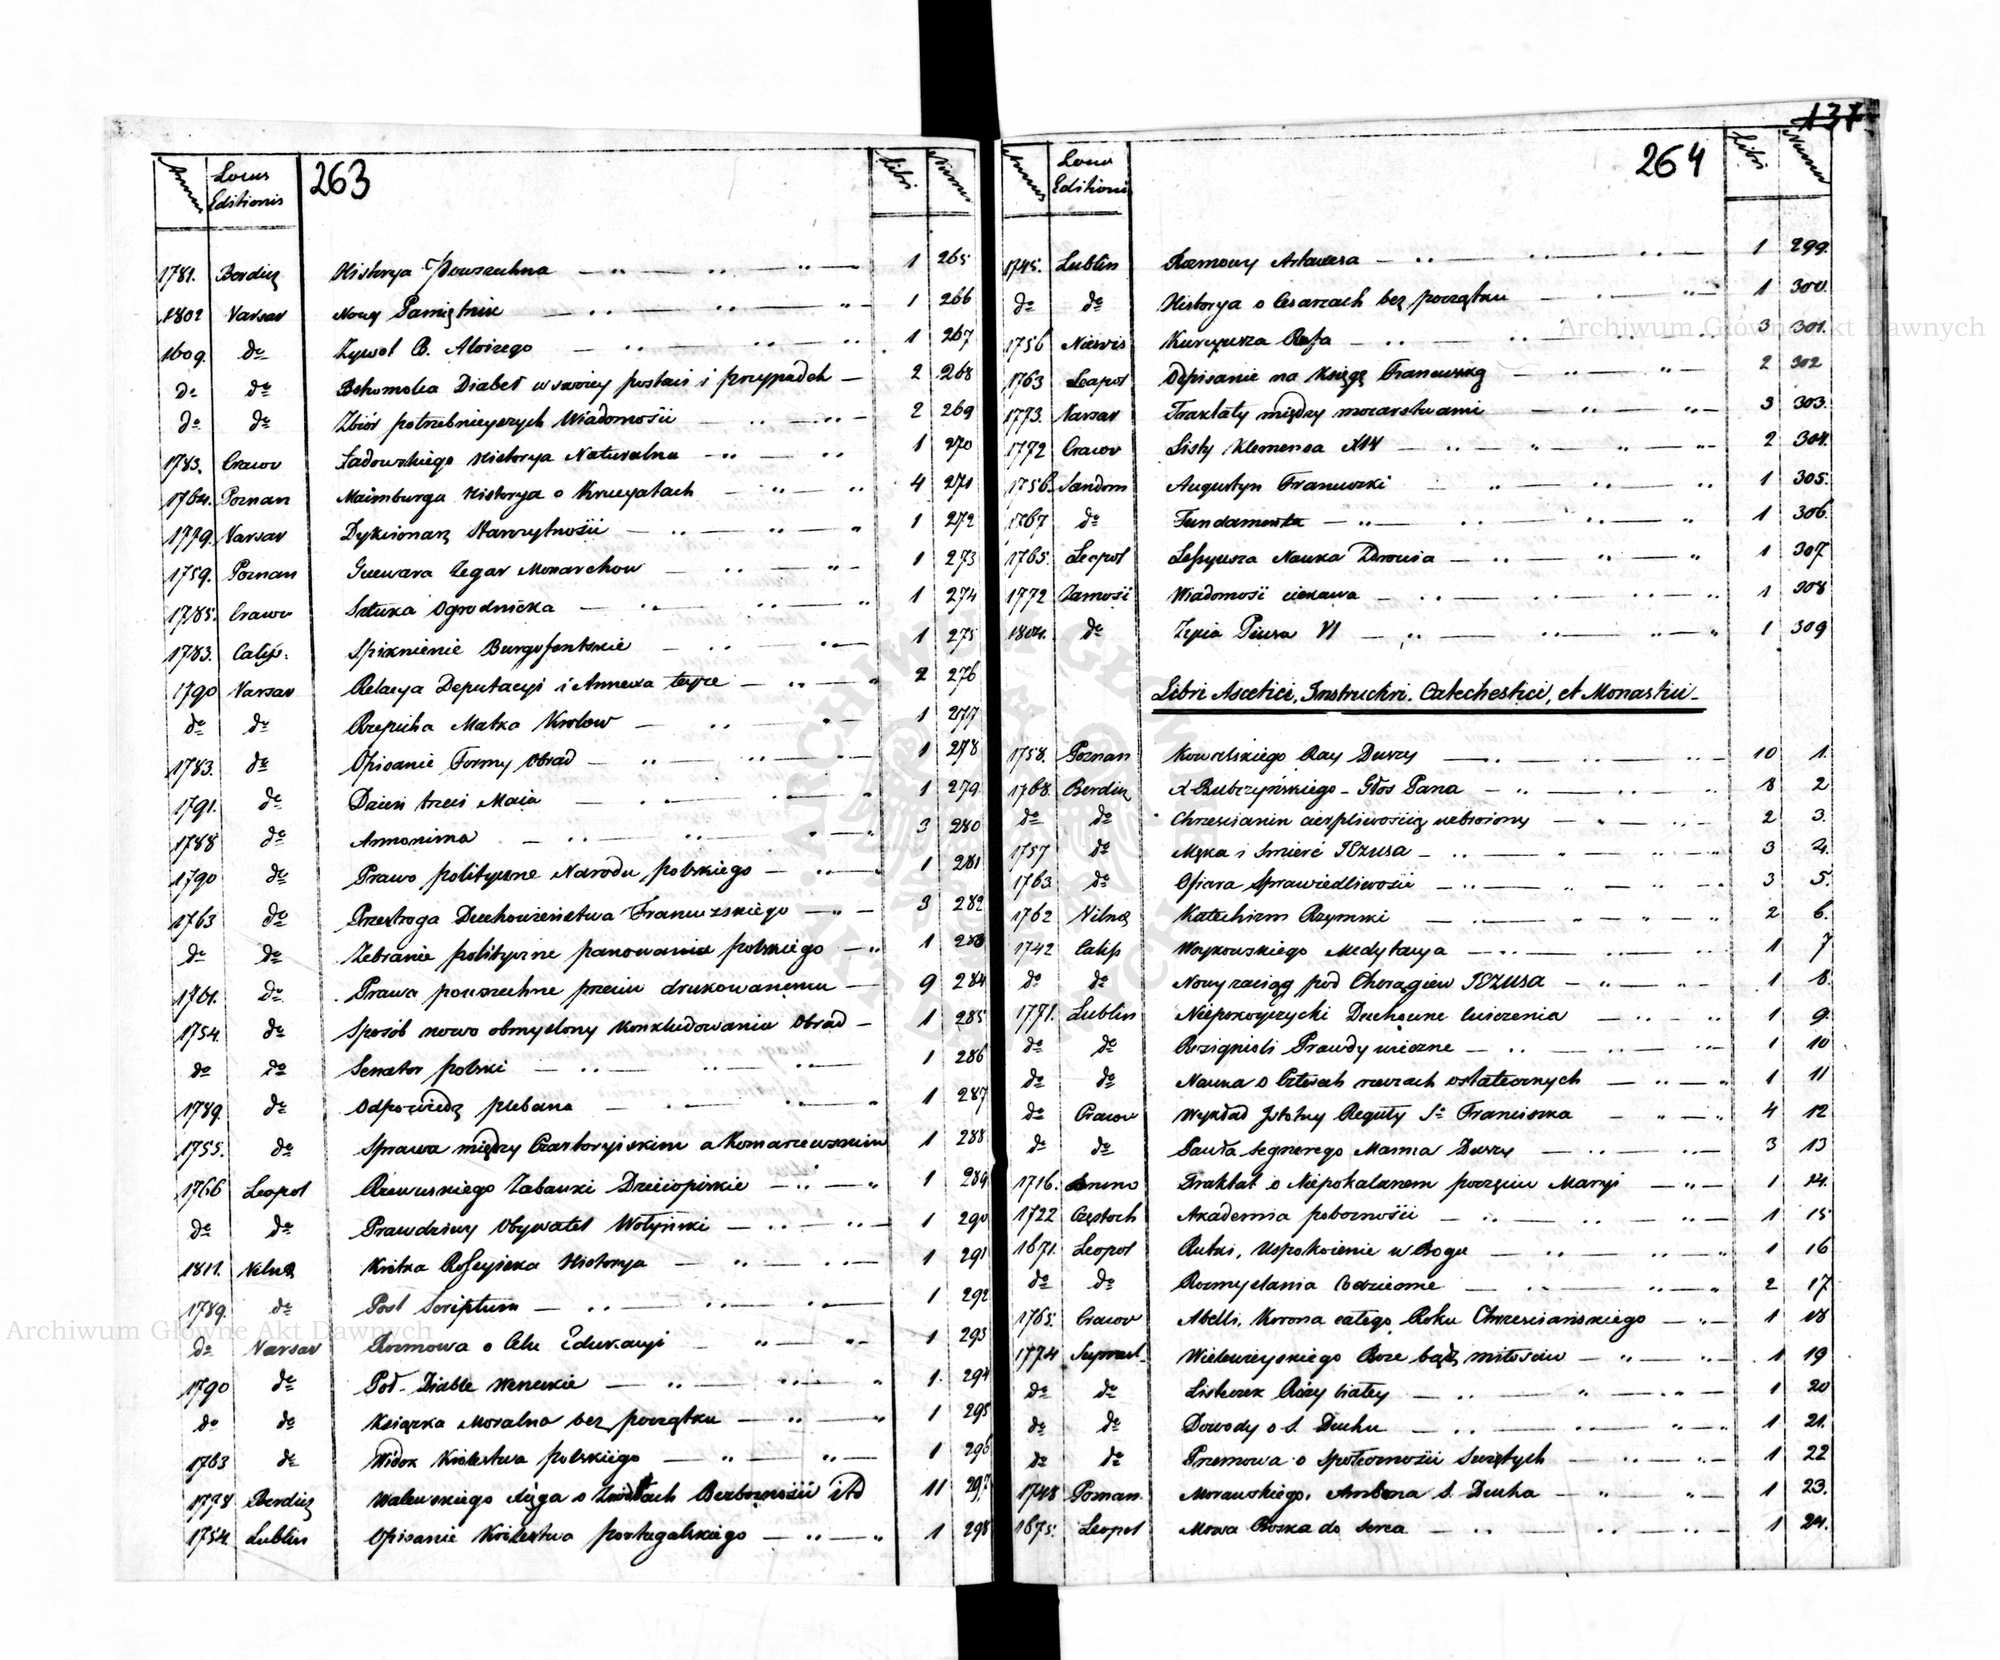 137
Annus Locus Editionis 263 Libri Numer
1781. Berdicz Historya Powszechna 1 265
1802 Varsav Nowy Pamiętnik 1 266
1609. do Zywot B. Aloizego 1 267
do do Bohomolca Diabeł w swoiey postaci i przypadch 2 268
do do Zbiór potrzebnieyszych Wiadomości 2 269
1783. Cracov Ładowskiego Historya Naturalna 1 270
1764. Poznan Maimburga Historya o Krucyatach 4 271
1779. Varsav Dykcionarz Starożytności 1 272
1759. Poznan Guewara Zegar Monarchow 1 273
1785. Cracov Sztuka Ogrodnicka 1 274
1783. Calis: Spiknienie Burgofontskie 1 275
1790 Varsav Relacya Deputacyi i Annexa teyże 2 276
do do Rzepicha Matka Krolow 1 277
1783. do Opisanie Formy Obrad 1 278
1791. do Dzień trzeci Maia 1 279
1788 do Annonima 3 280
1790 do Prawo polityczne Narodu polskiego 1 281
1763 do Przestroga Duchowieństwa Francuzskiego 3 282
do do Zebranie polityczne panowania polskiego 1 283
1761. do Prawa powszechne przeciw drukowanemu 9 284
1754. do Sposób nowo obmyslony konkludowania Obrad 1 285
do do Senator polski 1 286
1789. do Odpowiedz plebana 1 287
1755. do Sprawa między Czartoryiskim a Komarzewskim 1 288
1766 Leopol Rzewuskiego Zabawki Dzieiopiskie 1 289
do do Prawdziwy Obywatel Wołyński 1 290
1811. Vilnæ Krótka Rossyiska Historya 1 291
1789. do Post Scriptum 1 292
do Varsav Rozmowa o Celu Edukacyi 1 293
1790 do Pod Diable Weneckie 1. 294
do do Książka Moralna bez początku 1 295
1763 do Widok Królestwa polskiego 1 296
1798 Berdicz Walewskiego Xięga o Bezbożności itd 11 297
1754 Lublin Opisanie Królestwa portugalskiego 1 298
Annus Locus Editionis 264 Libri Numer
1745. Lublin Rozmowy Artaxersa 1 299.
do do Historya o Cesarzach bez początku 1 300.
1756 Kurcyusza Rufa 3 301.
1763 Leopol Odpisanie na Księgę Francuską 2 302
1773. Varsav Traktaty między mocarstwami 3 303.
1772 Cracov Listy Klemensa XIV 2 304.
1756. Sandom Augustyn Francuzki 1 305.
1767 do Fundamenta 1 306.
1765. Leopol Lepsza Nauka Zdrowia 1 307
1772 Zamość Wiadomość ciekawa 1 308
1804. do Życia Piusa VI 1 309
Libri Ascetici, Instructivi, Catechestici, et Monastici
1758. Poznan Kowalskiego Ray Duszy 10 1.
1768. Berdicz X Rubczyńskiego Głos Pana 8 2
do do Chrzescianin cierpliwością uzbroiony 2 3.
1757 do Męka i Smierć JEZUSA 3 4.
1763. do Ofiara Sprawiedliwości 3 5.
1762 Vilnæ Katechizm Rzymski 2 6.
1742 Calis Woykowskiego Medytacya 1 7
do do Nowy zaciąg pod Chorągiew JEZUSA 1 8.
1771. Lublin Niepokoyczycki Duchowne ćwiczenia 1 9.
do do Rozignioli Prawdy wieczne 1 10
do do Nauka o Czterech rzeczach ostatecznych 1 11
do Cracov Wykład Istotny Reguły S. Franciszka 4 12
do do Pawła Segnerego Manna Duszy 3 13
1716. Traktat o Niepokalanem poczęciu Maryi 1 14.
1722 Częstoch Akademia pobożności 1 15
1671. Leopol Rutki, Uspokoienie w Bogu 1 16
do do Rozmyslania Codzienne 2 17
1765. Cracov Abelli, Korona całego Roku Chrzesciańskiego 1 18
1774 Suprasl. Wielewieyskiego Boże bądz miłosciw 1 19
do do Listeczek Rózy białey 1 20
do do Dowody o S. Duchu 1 21.
do do Przemowa o Społeczności Swiętych 1 22
1748 Poznan. Morawskiego. Ambona S. Ducha 1 23.
1675. Leopol Mowa Boska do serca 1 24.
Archiwum Główne Akt Dawnych
Archiwum Główne Akt Dawnych